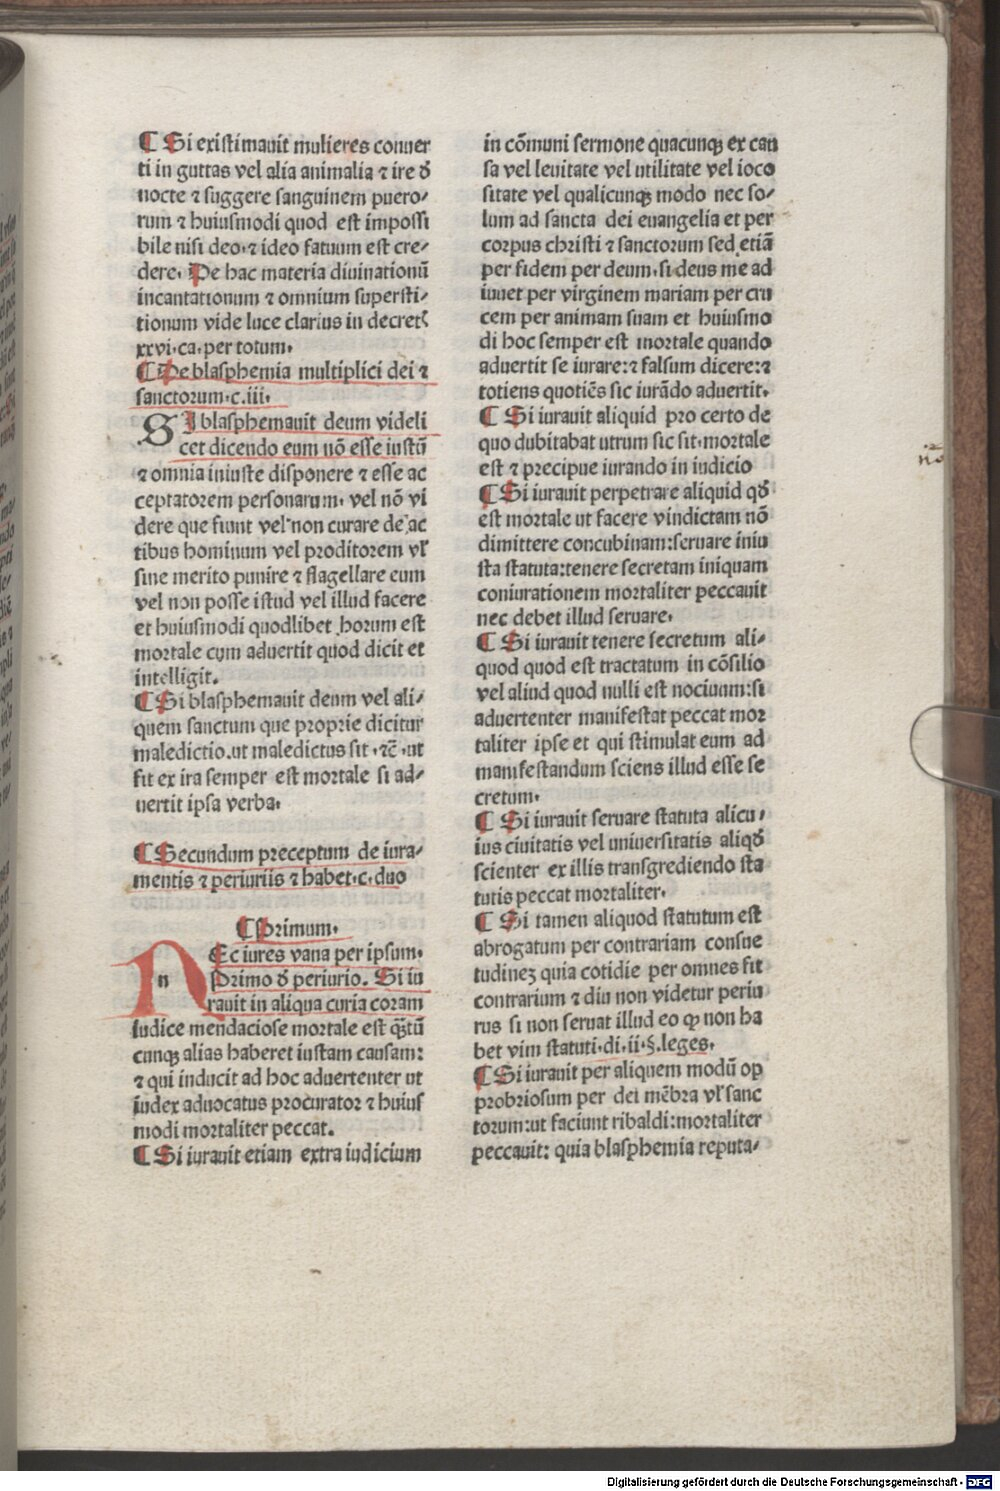 ¶ Si existimauit mulieres conuer
ti in guttas vel alia animalia ⁊ ire đ
nocte ⁊ suggere sanguinem puero⸗
rum ⁊ huiusmodi quod est impossi
bile nisi deo·⁊ ideo fatuum est cre⸗
dere. De hac materia diuinationū
incantationum ⁊ omnium supersti⸗
tionum vide luce clarius in decretꝭ
xxvi·ca·per totum·
¶ De blasphemia multiplici dei ⁊
sanctorum·c.iii·
SI blasphemauit deum videli
cet dicendo eum nō esse iustū
⁊ omnia iniuste disponere ⁊ esse ac
ceptatorem personarum· vel nō vi
dere que fiunt vel non curare de ac
tibus hominum vel proditorem vl̓
sine merito punire ⁊ flagellare eum
vel non posse istud vel illud facere
et huiusmodi quodlibet horum est
mortale cum aduertit quod dicit et
intelligit.
¶ Si blasphemauit deum vel ali⸗
quem sanctum que proprie dicitur
maledictio.ut maledictus sit ·⁊c̄ ·ut
fit ex ira semper est mortale si ad⸗
uertit ipsa verba·
¶ Secundum preceptum de iura⸗
mentis ⁊ periuriis ⁊ habet·c·duo
¶ Primum·
n
NEc iures vana per ipsum·
Primo đ periurio. Si iu
rauit in aliqua curia coram
iudice mendaciose mortale est q̄ꝫtū
cunqꝫ alias haberet iustam causam:
⁊ qui inducit ad hoc aduertenter ut
iudex aduocatus procurator ⁊ huius
modi mortaliter peccat.
¶ Si iurauit etiam extra iudicium
in cōmuni sermone quacunqꝫ ex cau
sa vel leuitate vel utilitate vel ioco
sitate vel qualicunqꝫ modo nec so⸗
lum ad sancta dei euangelia et per
corpus christi ⁊ sanctorum sed etiā
per fidem per deum·si deus me ad
iuuet per virginem mariam per cru
cem per animam suam et huiusmo
di hoc semper est mortale quando
aduertit se iurare:⁊ falsum dicere:⁊
totiens quotiēs sic iurādo aduertit·
¶ Si iurauit aliquid pro certo de
quo dubitabat utrum sic sit·mortale
est ⁊ precipue iurando in iudicio
¶ Si iurauit perpetrare aliquid qđ
est mortale ut facere vindictam nō
dimittere concubinam:seruare iniu
sta statuta:tenere secretam iniquam
coniurationem mortaliter peccauit
nec debet illud seruare·
¶ Si iurauit tenere secretum ali⸗
quod quod est tractatum in cōsilio
vel aliud quod nulli est nociuum:si
aduertenter manifestat peccat mor
taliter ipse et qui stimulat eum ad
manifestandum sciens illud esse se
cretum·
¶ Si iurauit seruare statuta alicu⸗
ius ciuitatis vel uniuersitatis aliqđ
scienter ex illis transgrediendo sta
tutis peccat mortaliter·
¶ Si tamen aliquod statutum est
abrogatum per contrariam consue
tudineꝫ quia cotidie per omnes fit
contrarium ⁊ diu non videtur periu
rus si non seruat illud eo ꝙ non ha
bet vim statuti·di·ii·§.leges·
¶ Si iurauit per aliquem modū op
probriosum per dei mēbra vl̓ sanc
torum:ut faciunt ribaldi:mortaliter
peccauit: quia blasphemia reputa⸗
Digitalisierung gefördert durch die Deutsche Forschungsgemeinschaft - DFG